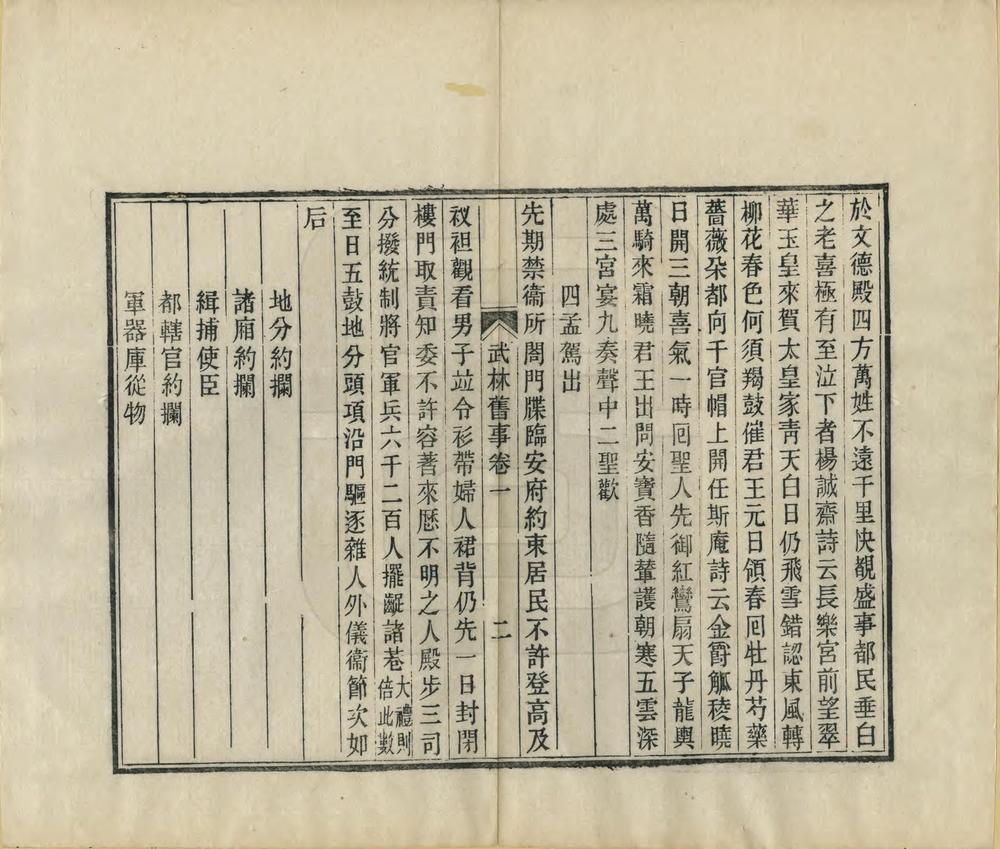 於文德殿四方萬姓不遠千里快覩盛事都民垂白
之老喜極有至泣下者楊誠齋詩云長樂宮前望翠
華玉皇來賀太皇家青天白日仍飛雪錯認東風轉
柳花春色何須羯鼓催君王元日領春囘牡丹芍藥
薔薇朵都向千官帽上開任斯庵詩云金爵觚稜曉
日開三朝喜氣一時囘聖人先御紅鸞扇天子龍輿
萬騎來霜曉君王出問安寶香隨輦護朝寒五雲深
處三宮宴九奏聲中二聖歡
四孟駕出
先期禁衞所閤門牒臨安府約束居民不許登高及
武林舊事卷一 二
衩袒觀看男子竝令衫帶婦人裙背仍先一日封閉
樓門取責知委不許容著來厯不明之人殿步三司
分撥統制將官軍兵六千二百人擺齪諸巷大禮則倍此數
至日五鼓地分頭項沿門驅逐雜人外儀衞節次如
后
地分約攔
諸廂約攔
緝捕使臣
都轄官約攔
軍器庫從物